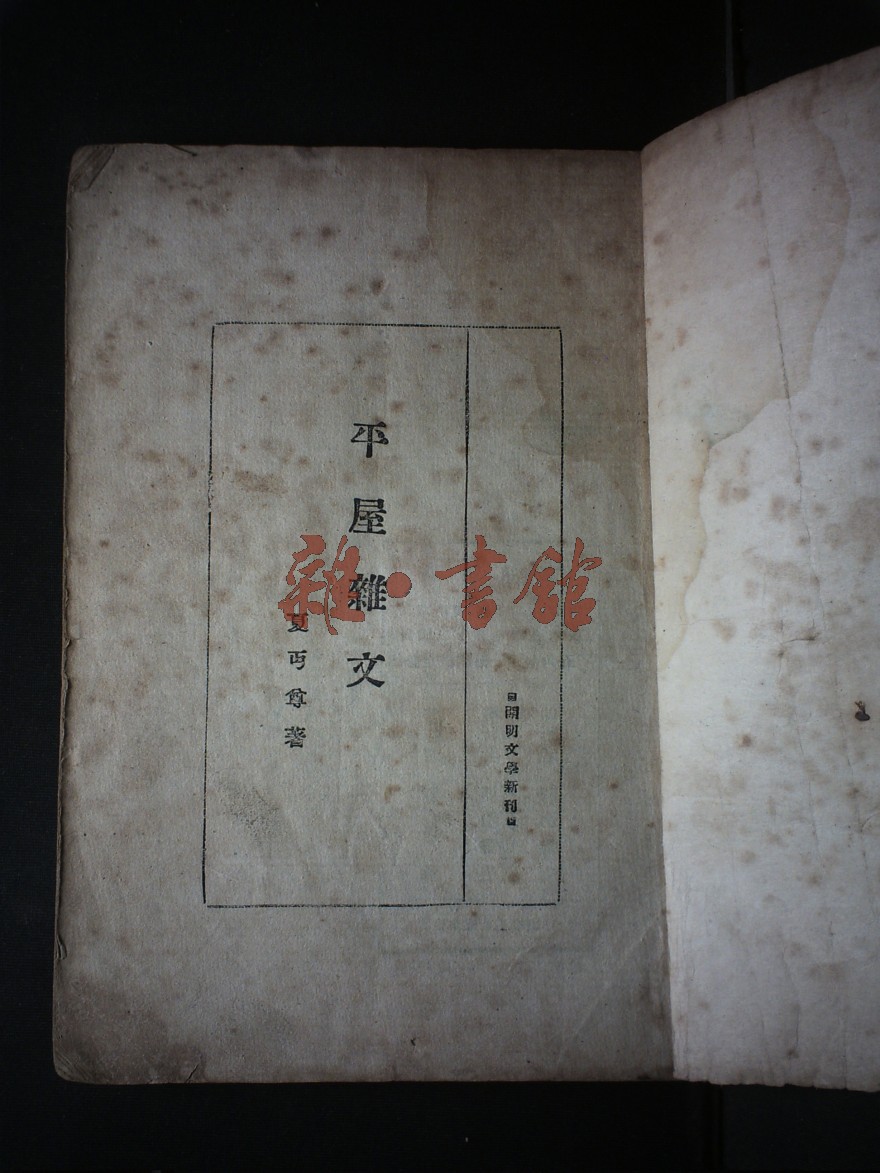 開明文學新刊
平屋雜文
夏丏尊著
雜·書館